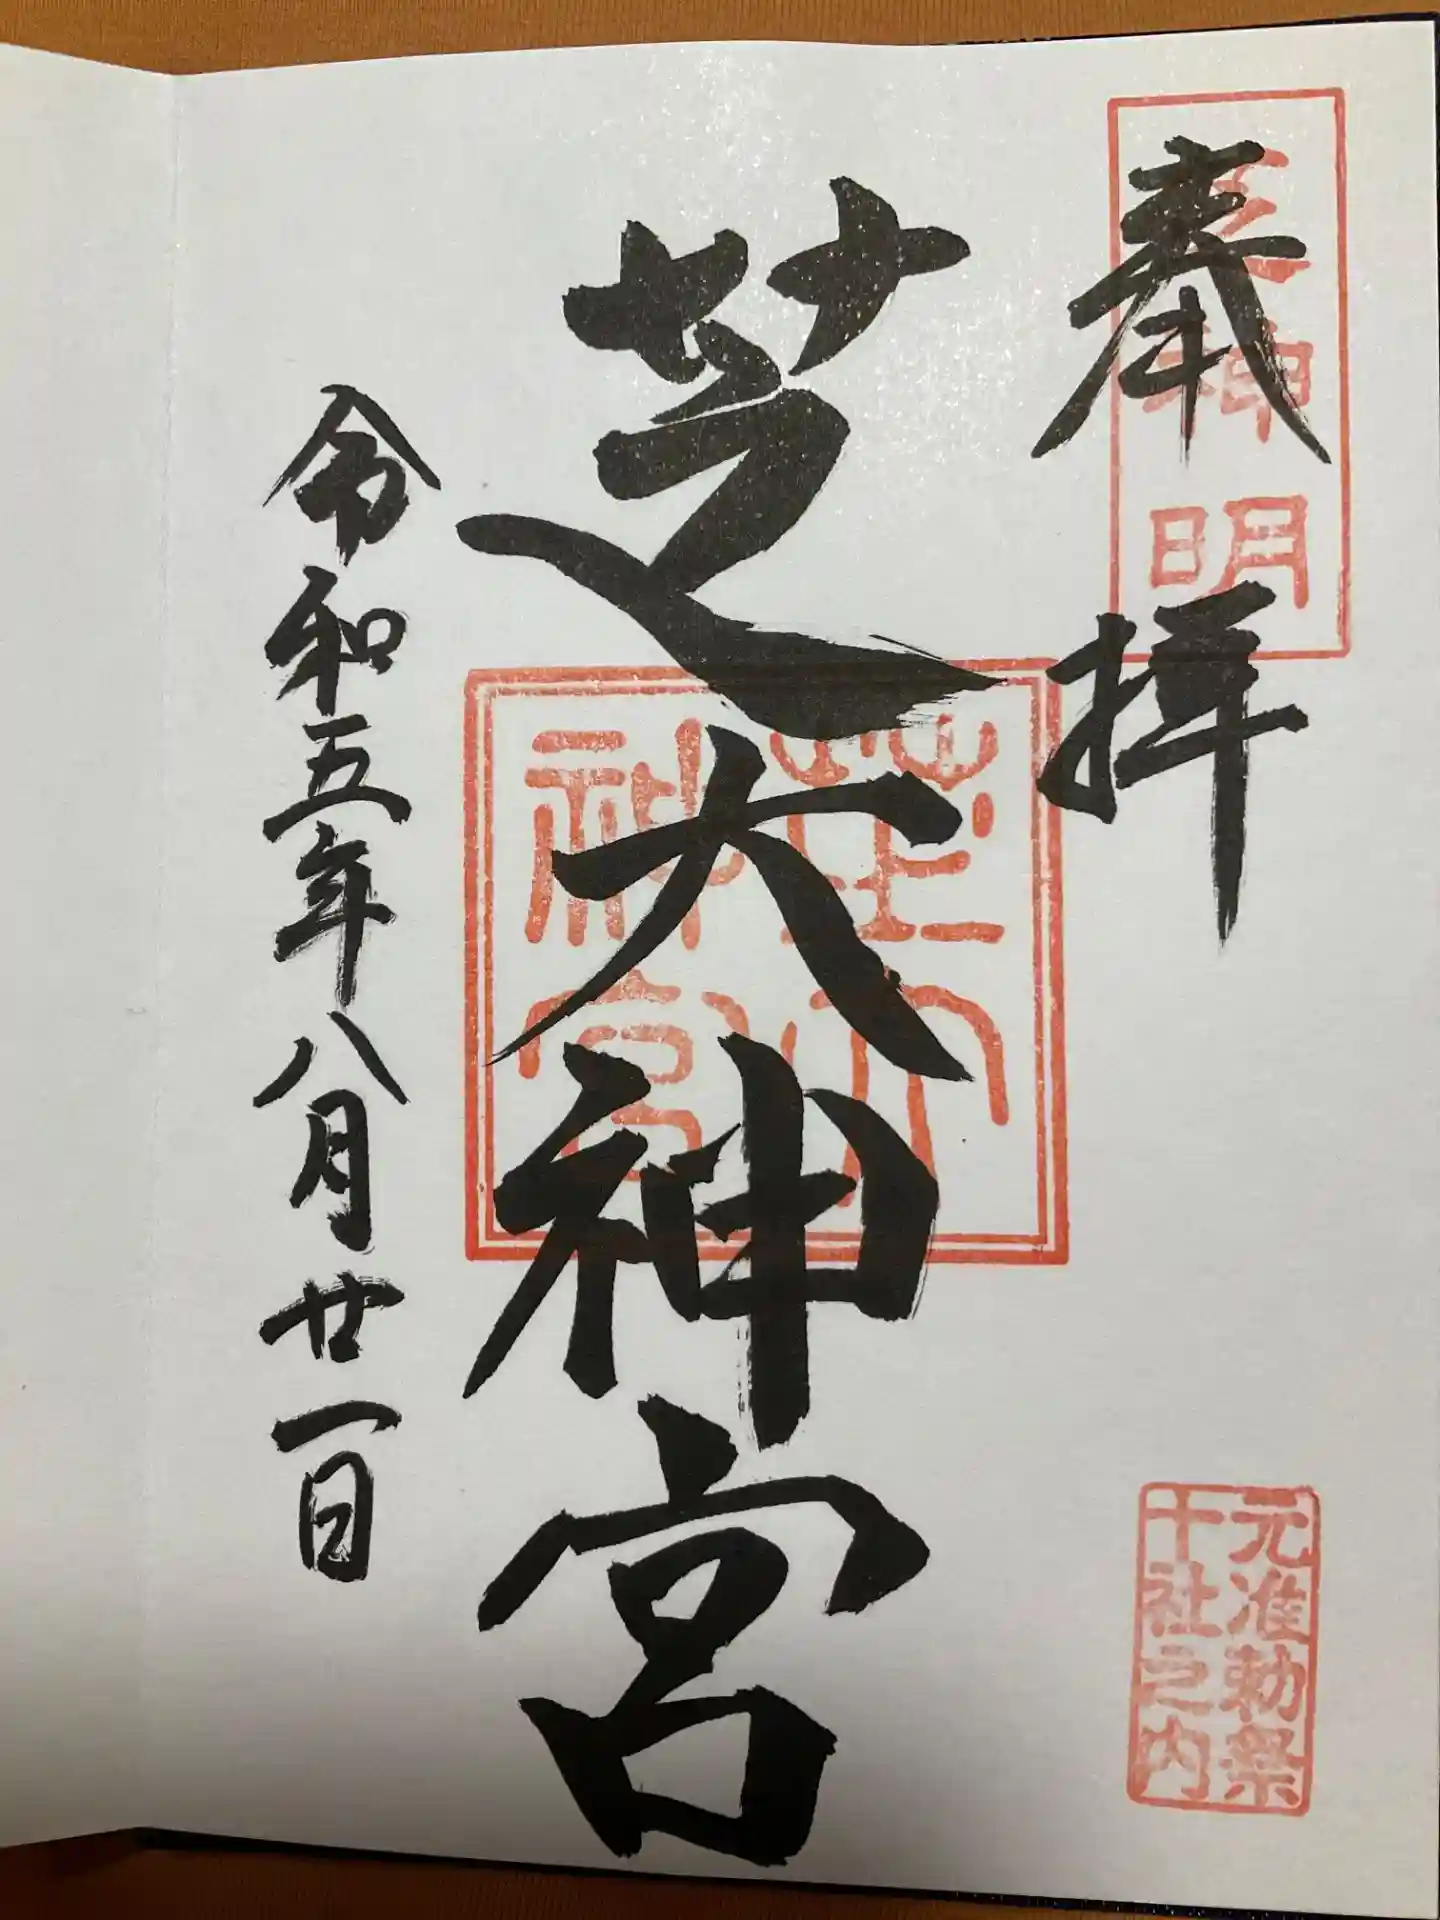 奉拝
芝神明
元准勅祭
十社之内
芝大神宮
芝大
神宮
令和五年八月廿一日